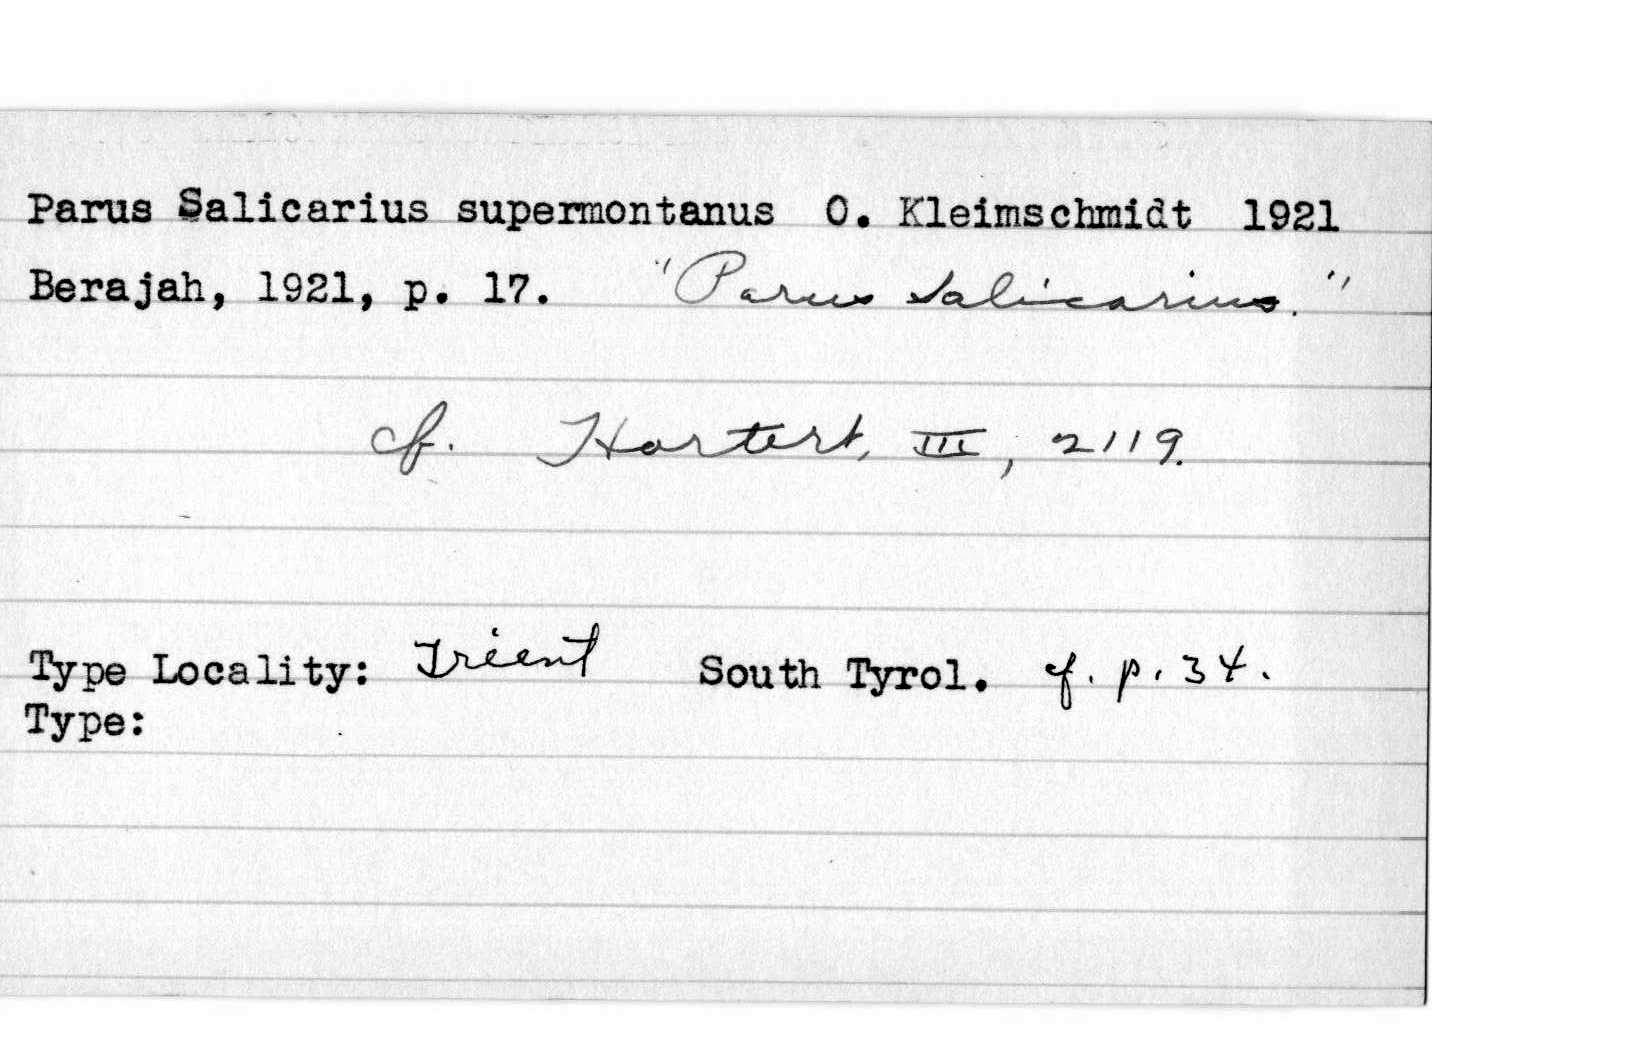 Parus Salicarius supermontanus O. Kleimschmidt 1921
Berajah, 1921, p. 17. "Parus Salicarius."
cf. Hartert, III, 2119.
Type Locality: Trient South Tyrol. cf. p. 34.
Type: